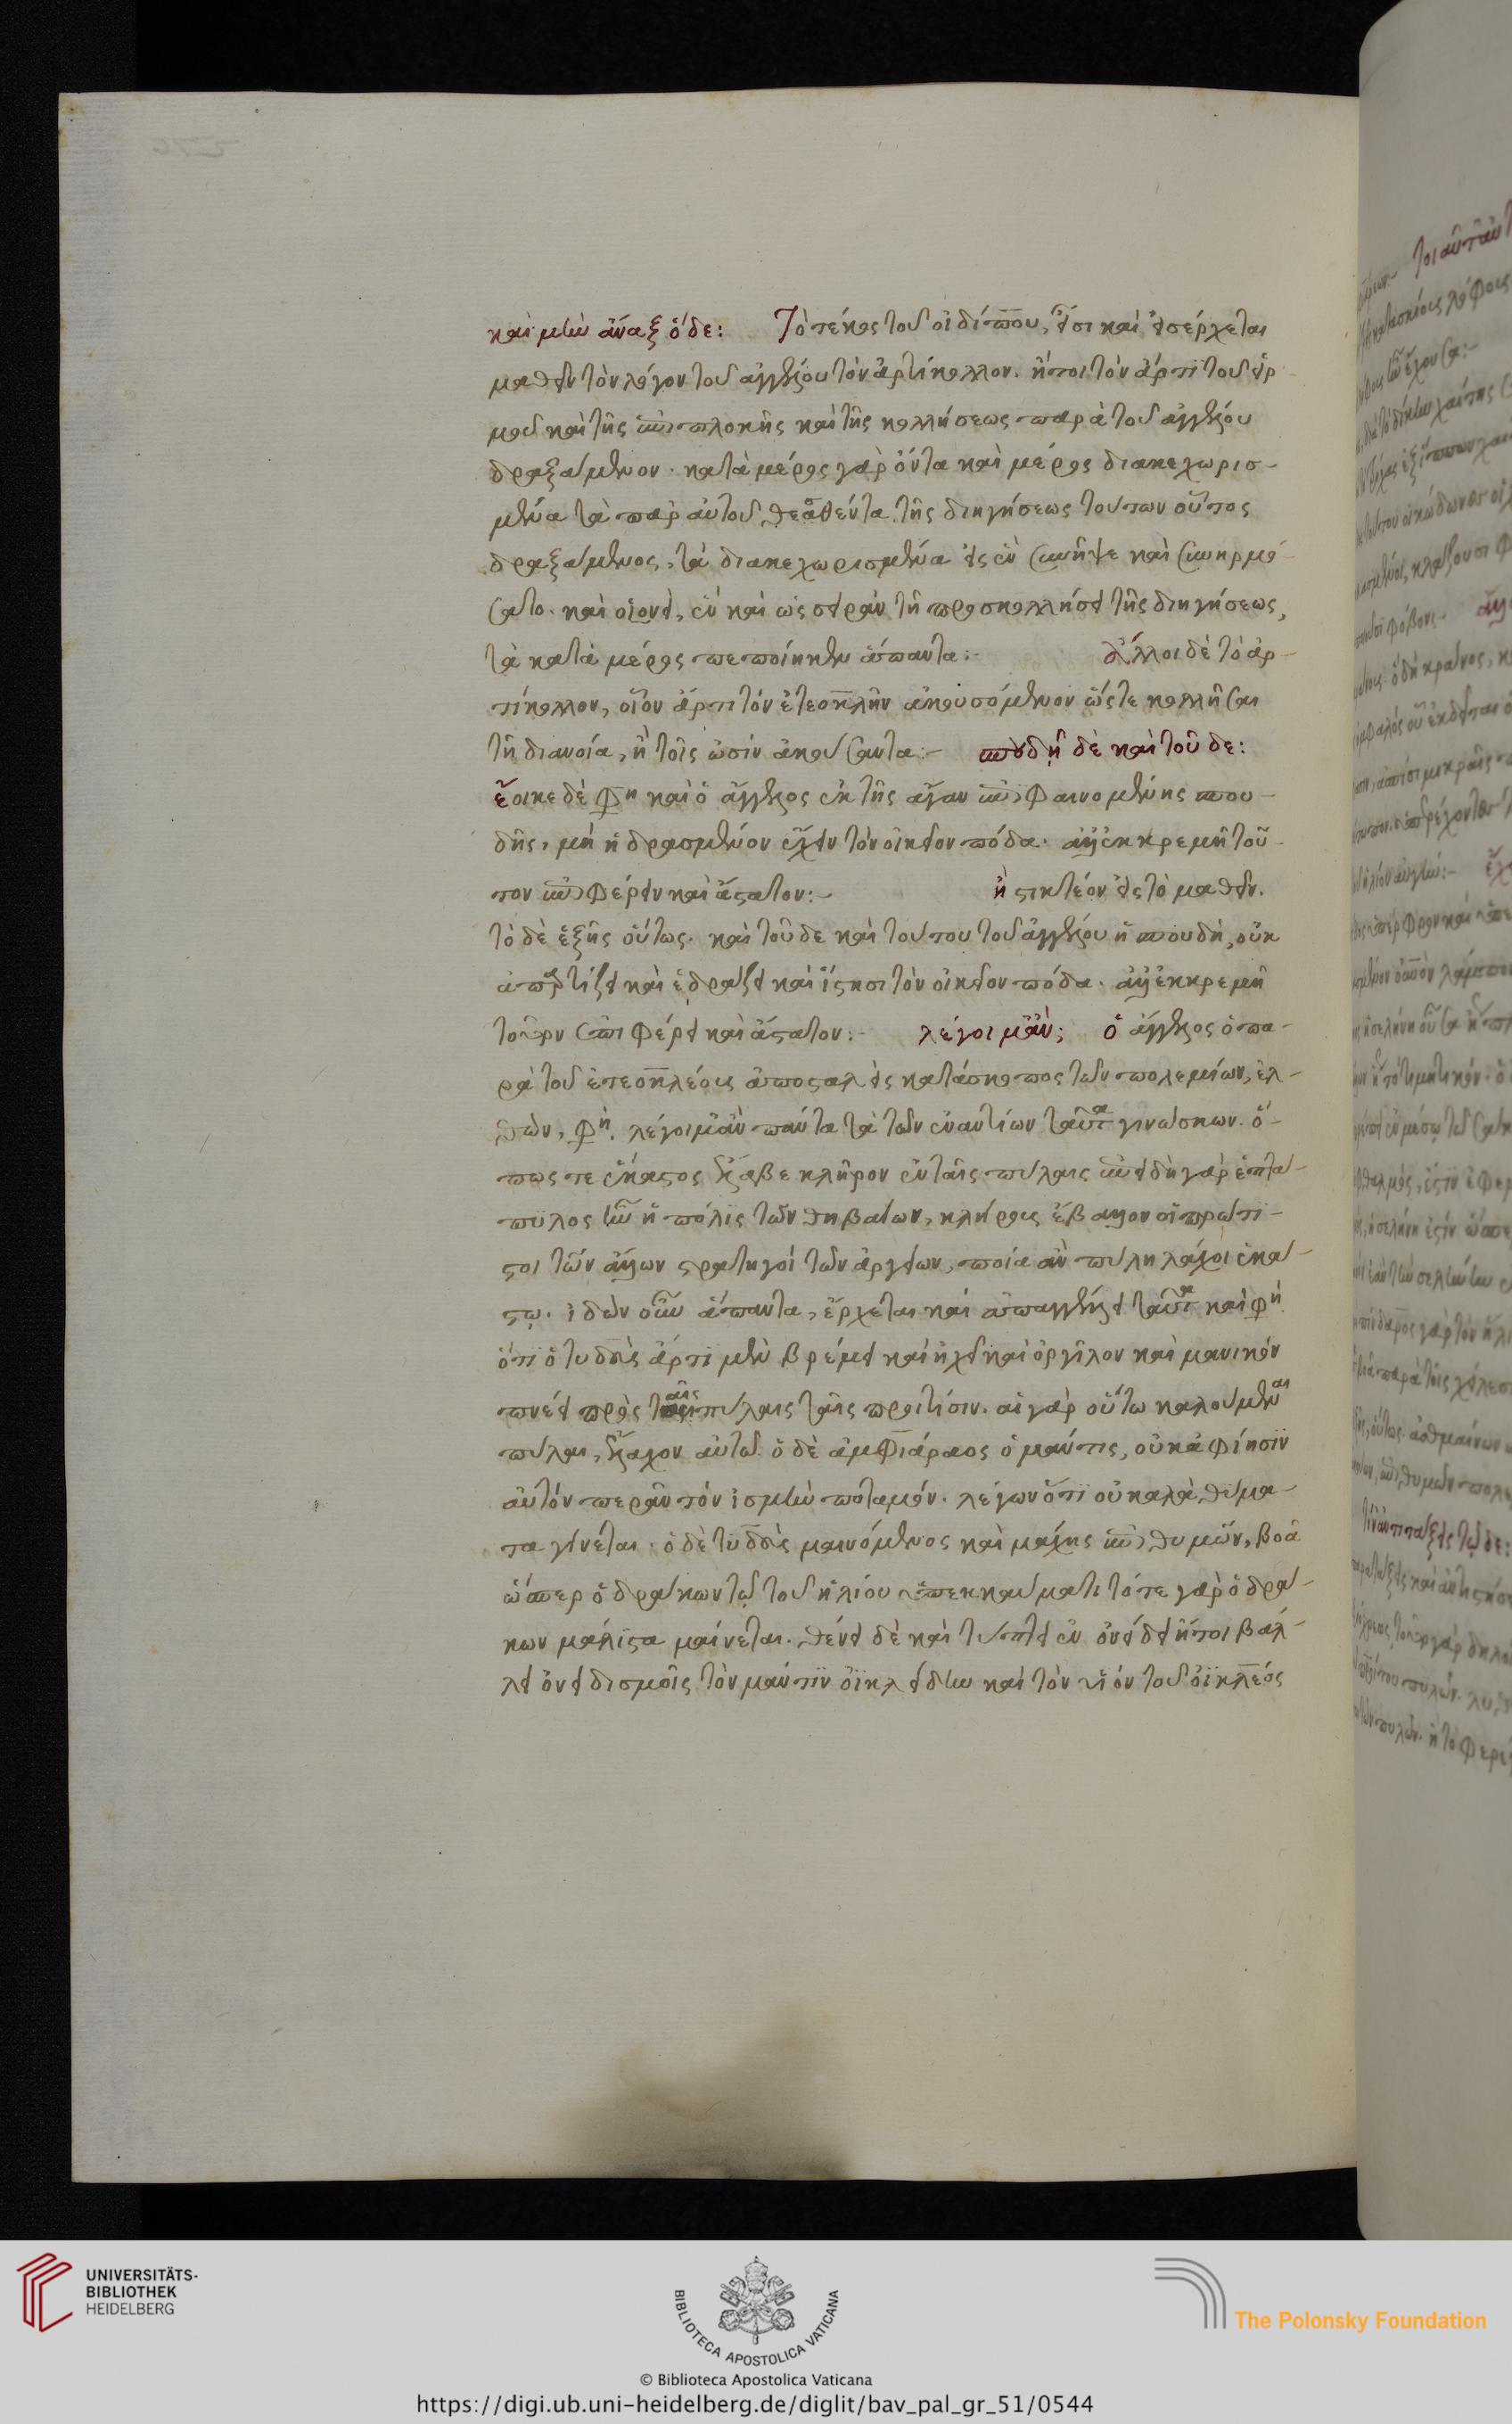 καὶ μὴν ἄναξ ὅδε: Τὸ τέκος τοῦ οἰδίπου, εἶσι καὶ εἰσέρχεται
μαθεῖν τὸν λόγον τοῦ ἀγγέλου τὸν ἀρτίκολλον. ἤτοι τὸν ἄρτι τοῦ εἱρ-
μοῦ καὶ τῆς ἐπιπλοκῆς καὶ τῆς κολλήσεως παρὰ τοῦ ἀγγέλου
δραξάμενον. κατὰ μέρος γὰρ ὄντα καὶ μέρος διακεχωρισ-
μένα τὰ παρ' αὐτοῦ θεαθέντα τῆς διηγήσεως τούτων οὗτος
δραξάμενος, τὰ διακεχωρισμένα εἰς ἓν συνῆψε καὶ συνηρμό-
σατο. καὶ οἱονεὶ, ἓν καὶ ὡς στερρὰν τῇ προσκολλήσει τῆς διηγήσεως,
τὰ κατὰ μέρος πεποίηκεν ἅπαντα:-
ἄλλοι δὲ τὸ ἀρ-
τίκολλον, οἷον ἄρτι τὸν ἐτεοκλῆν ἀκουσόμενον ὥστε κολλῆσαι
τῇ διανοίᾳ, ἢ τοῖς ὠσὶν ἀκούσαντα:- σπουδὴ δὲ καὶ τοῦδε:
ἔοικε δὲ φη καὶ ὁ ἄγγελος ἐκ τῆς ἄγαν ἐπιφαινομένης σπου-
δῆς, μὴ ἡδρασμένον ἔχειν τὸν οἰκεῖον πόδα. ἀλλ' ἐκκρεμῆ τοῦ-
τον ἐπιφέρειν καὶ ἄστατον:- ἢ στικτέον εἰς τὸ μαθεῖν.
τὸ δὲ ἑξῆς οὕτως. καὶ τοῦδε καὶ τούτου τοῦ ἀγγέλου ἡ σπουδὴ, οὐκ
ἀπαρτίζει καὶ ἑδράζει καὶ ἵστησι τὸν οἰκεῖον πόδα. ἀλλ' ἐκκρεμῆ
τοῦτον ἐπιφέρει καὶ ἄστατον:- λέγοιμ' ἂν: ὁ ἄγγελος ὁ πα-
ρὰ τοῦ ἐτεοκλέους ἀποσταλεὶς κατάσκοπος τῶν πολεμίων, ἐλ-
θὼν, φη. λέγοιμ' ἂν πάντα τὰ τῶν ἐναντίων ταῦτα γινώσκων. ὅ-
πως τε ἕκαστος ἔλαβε κλῆρον ἐν ταῖς πύλαις ἐπειδὴ γὰρ ἑπτά-
πυλος ἦν ἡ πόλις τῶν θηβαίων, κλήρους ἔβαλλον οἱ πρώτι-
στοι τῶν ἄλλων στρατηγοὶ τῶν ἀργείων, ποία ἂν πύλη λάχοι ἑκά-
στῳ. ἰδὼν οὖν ἅπαντα, ἔρχεται καὶ ἀπαγγέλλει ταῦτα καὶ φη
ὅτι ὁ τυδεὺς ἄρτι μὲν βρέμει καὶ ἠχεῖ καὶ ὀργίλον καὶ μανικὸν
πνέει πρὸς ταῖς πύλαις ταῖς προιτίσιν. αἱ γὰρ οὕτω καλούμεναι
πύλαι, ἔλαχον αὐτῷ. ὁ δὲ ἀμφιάραος ὁ μάντις, οὐκ ἀφίησιν
αὐτὸν περᾶν τὸν ἰσμηνὸν ποταμόν. λέγων ὅτι οὐ καλὰ θύμα-
τα γίνεται. ὁ δὲ τυδεὺς μαινόμενος καὶ μάχης ἐπιθυμῶν, βοᾷ
ὥσπερ ὁ δράκων τῷ τοῦ ἡλίου ὑπεκκαύματι τότε γὰρ ὁ δρά-
κων μάλιστα μαίνεται. θείνει δὲ καὶ τύπτει ἐν ὀνείδει ἤτοι βάλ-
λει ὀνειδισμοῖς τὸν μάντιν οἰκλείδην καὶ τὸν υἱὸν τοῦ οἰκλέος
UNIVERSITÄTS-
BIBLIOTHEK
HEIDELBERG
BIBLIOTECA APOSTOLICA VATICANA
The Polonsky Foundation
© Biblioteca Apostolica Vaticana
https://digi.ub.uni-heidelberg.de/diglit/bav_pal_gr_51/0544